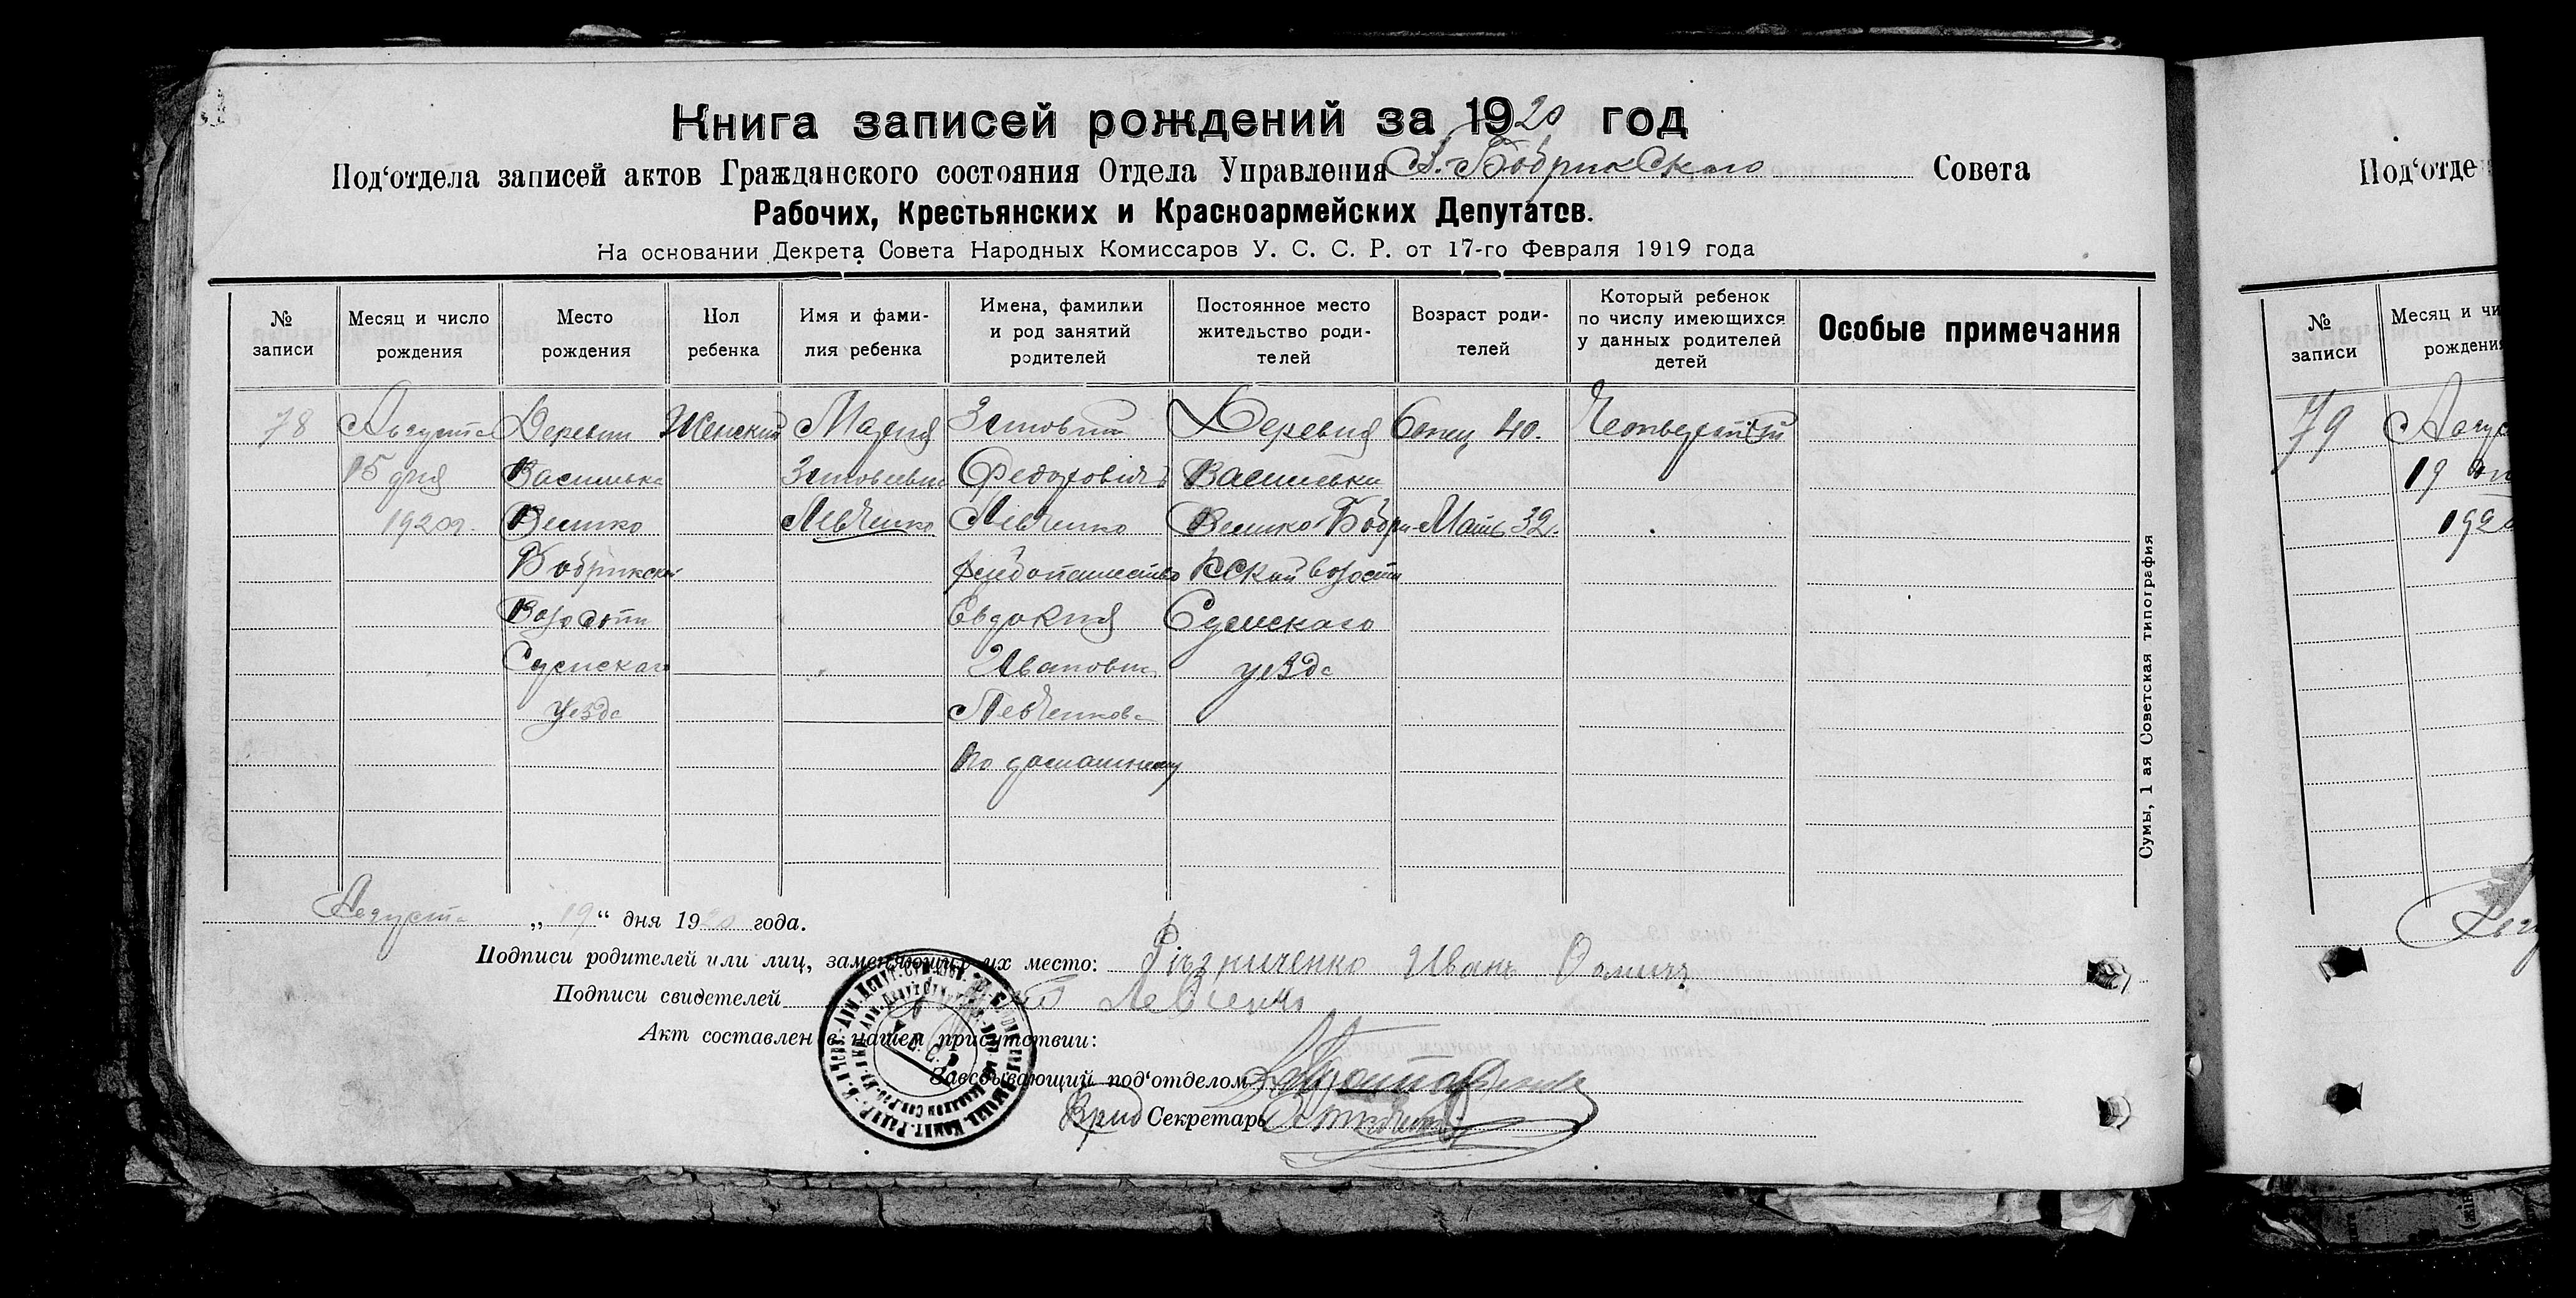 Книга записей рождений за 1920 год
Под‘отдела записей актов Гражданского состояния Отдела Управления В.-Бобрикского Совета
Рабочих, Крестьянских и Красноармейских Депутатов.
На основании Декрета Совета Народных Комиссаров У. С. С. Р. от 17-го Февраля 1919 года
№ записи
Месяц и число рождения
Место рождения
Пол ребенка
Имя и фами-
лия ребенка
Имена, фамилии
и род занятий
родителей
Постоянное место
жительство роди-
телей
Возраст роди-
телей
Который ребенок
по числу имеющихся
у данных родителей
детей
Особые примечания
78
Августа
15 дня
1920 г.
Деревни
Васильевка
Велико
Бобрикской
Волости
Сумскаго
уезда
Женский
Мария
Зиновьевна
Левченко
Зиновий
Федорович
Левченко
хлебопашество
Евдокия
Ивановна
Левченкова
по домашнему
Деревня
Васильевки
Велико-Бобри-
кской волости
Сумскаго
уезда
Отец 40.
Мать 32.
Четвертый
Сумы, 1 ая Советская типография
Августа „19“ дня 1920 года.
Подписи родителей или лиц, заменяющих их место: Иван
Подписи свидетелей Левченко
Акт составлен в нашем присутствии:
Заведывающий под‘отделом
Врид Секретарь
Под‘отде
№ записи
Месяц и чи
рождени
79
Авгус
19
192
Авгу